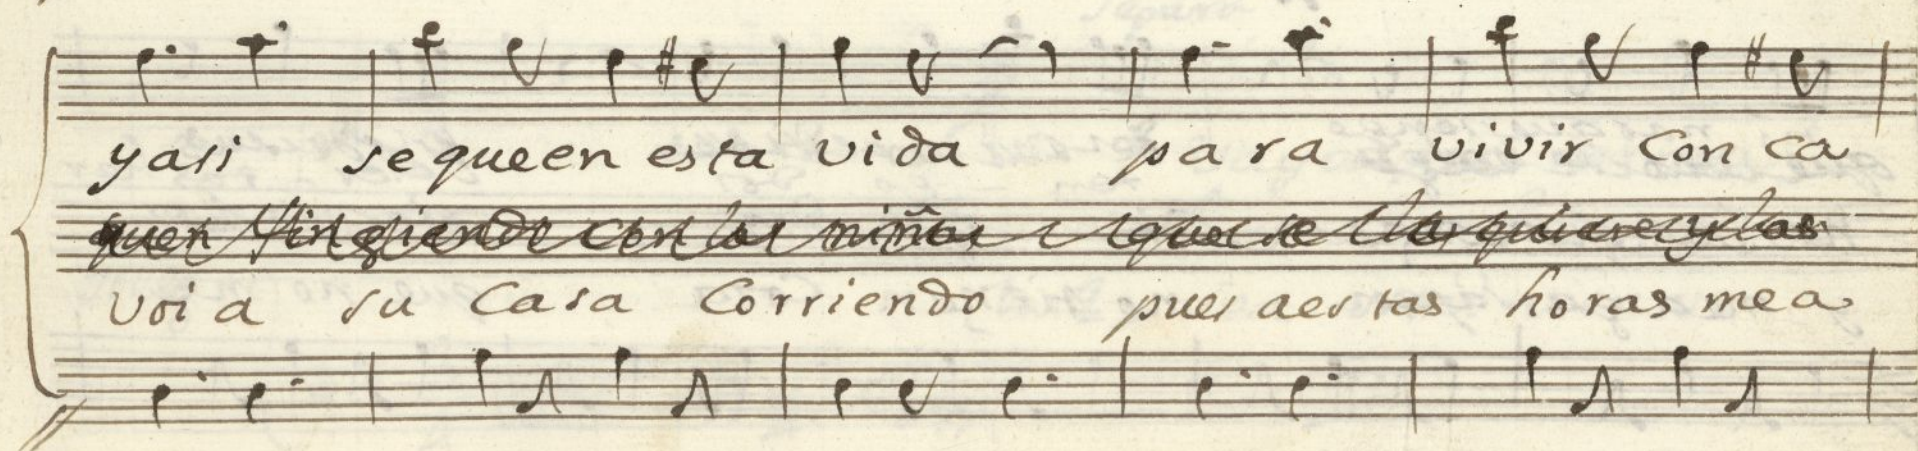 y asi se que en esta vida para vivir con ca
quen fingiendo con las niñas que se las quiere y las
voi a su Casa Corriendo pues a estas horas me a